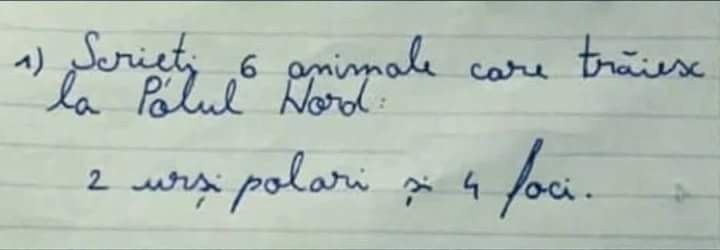 1) Scrieți 6 animale care trăiesc
la Polul Nord:
2 urși polari și 4 foci.